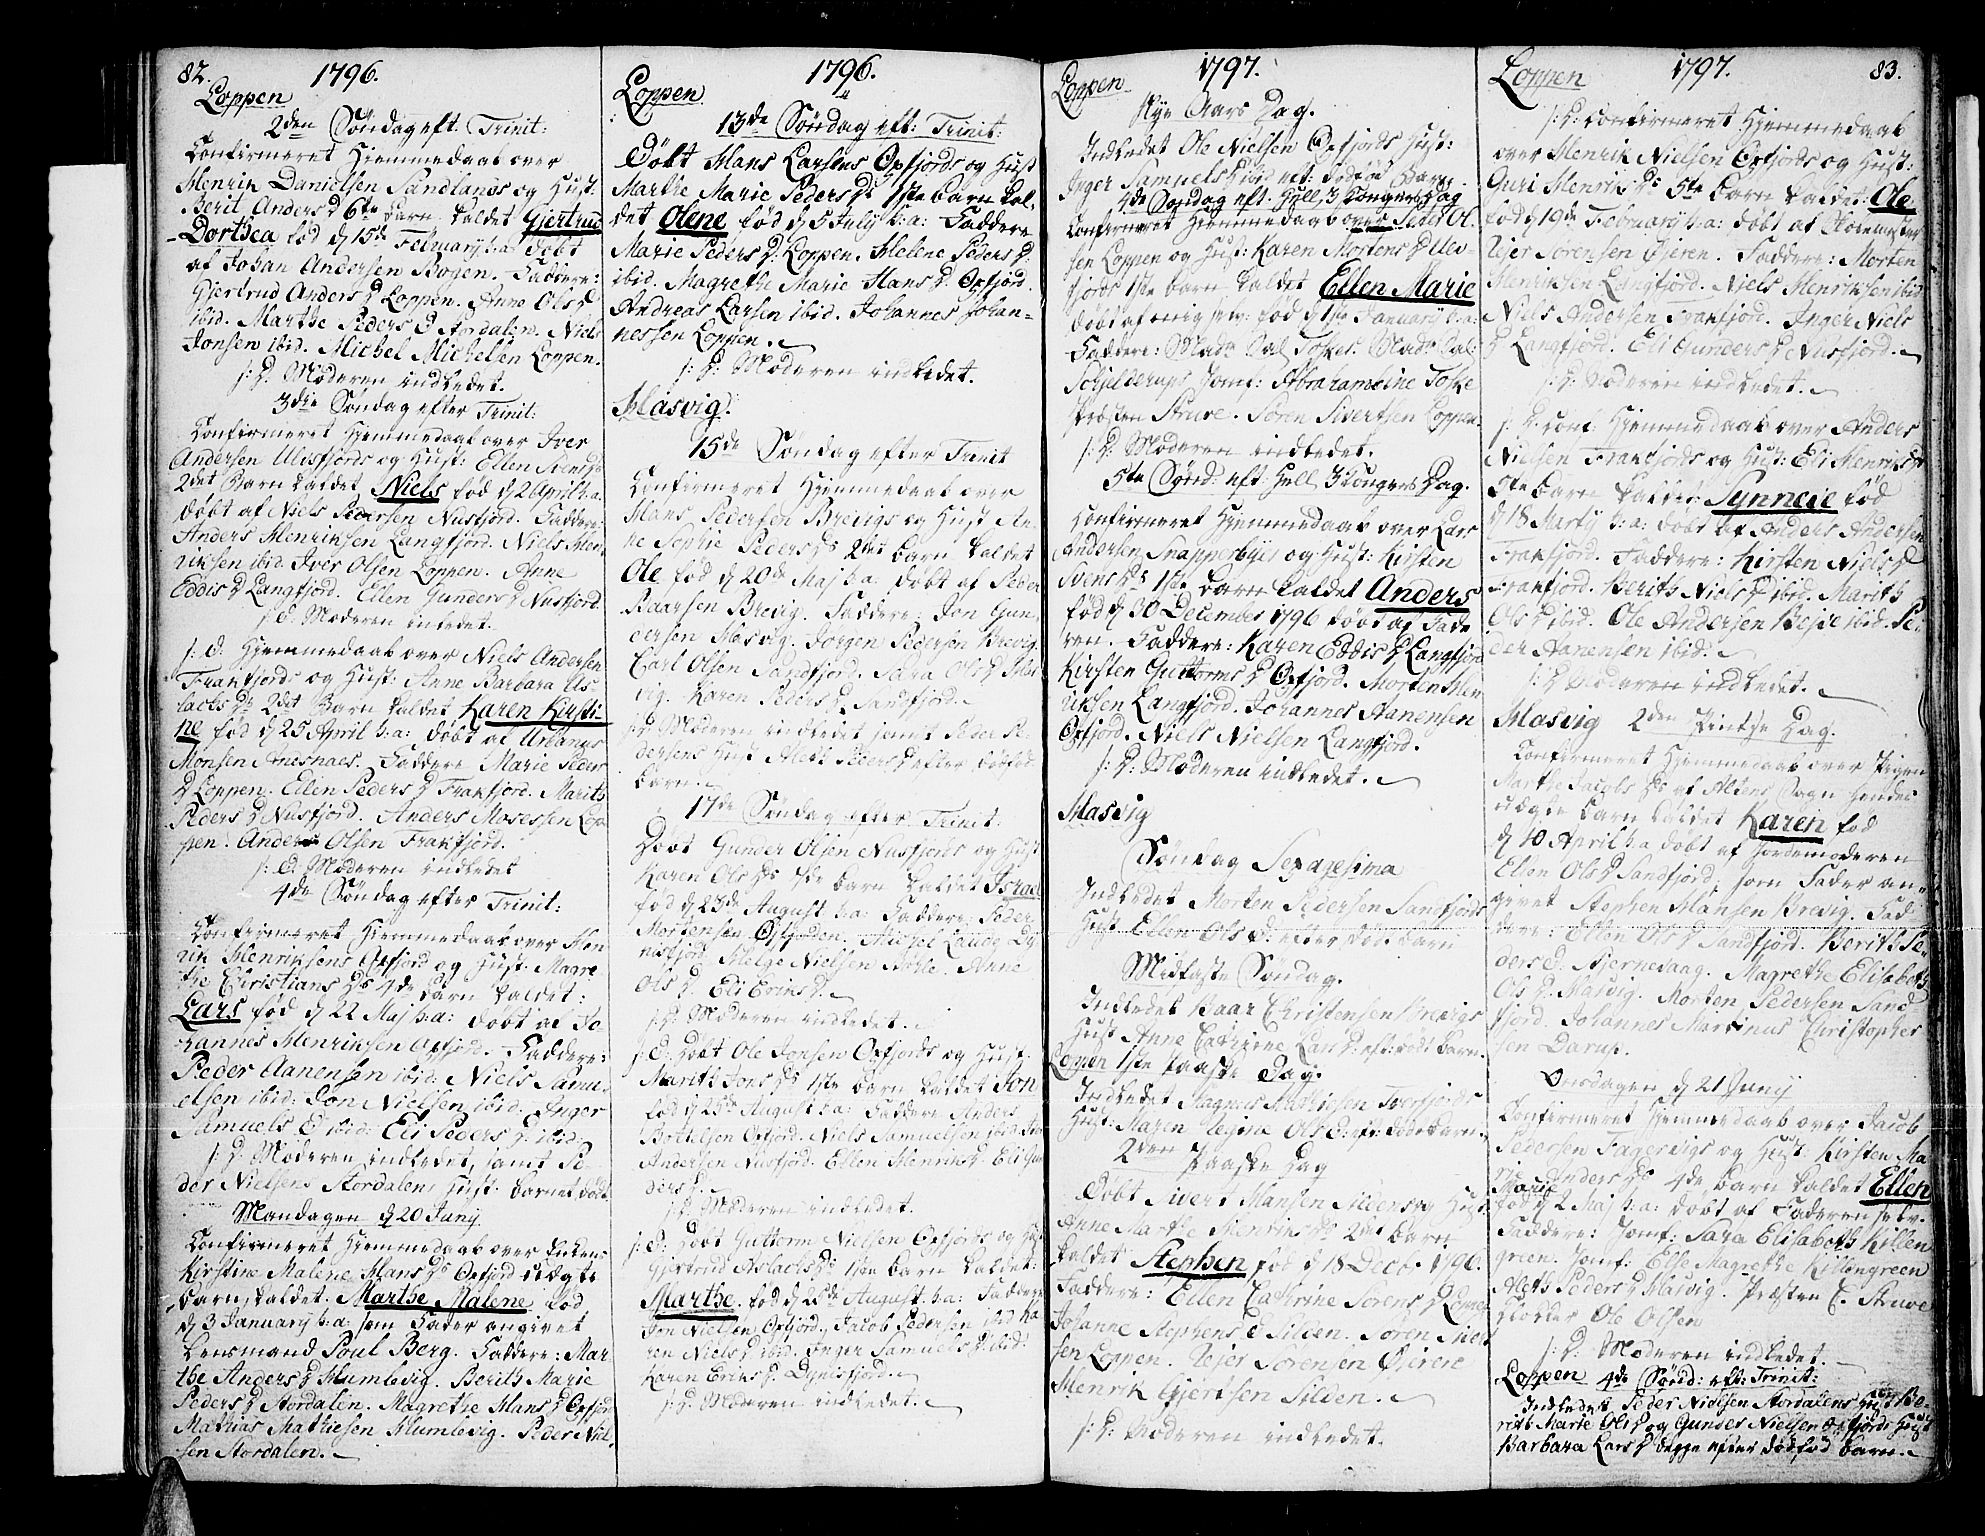 82. 1796.
Loppen
2den Søndag eft. Trinit:
Confirmeret Hjemmedaab over
Henrik Danielsen Sandlands og Hust:
Berit Anders D 6te barn kaldet Gjertrud
Dorthea fød d 15de February h:a: døbt
af Johan Andersen Bogen. Faddere:
Gjertrud Anders D Loppen. Anne Ols D
ibid. Marthe Peders D Stordalen. Niels
Jonsen ibid. Michel Michelsen Loppen.
s: D: Moderen indledet.
3die Søndag efter Trinit:
Confirmeret Hjemmedaab over Iver
Andersen Ulvsfjords og Hust: Ellen Svends D
2det Barn kaldet Niels fød d 2 April h:a.
døbt af Niels Pedersen Nusfjord. Faddere:
Anders Henriksen Langfjord. Niels Hen
riksen ibid. Iver Olsen Loppen. Anne
Eddis D Langfjord. Ellen Gunders D Nusfjord.
s: D. Moderen indledet.
s: D: Hjemmedaab over Niels Andersen
Frakfjords og Hust: Anne Barbara As-
lacks Ds 2det Barn kaldet Karen Kirsti-
ne fød d 25 April h:a: døbt af Urbanus
Monsen Anesnaes. Faddere Marie Peder
D Loppen. Ellen Peders D Frakfjord. Marith
Peders D Nusfjord. Anders Mosessen Lop
pen. Anders Olsen Frakfjord.
s: D: Moderen indledet
4de Søndag efter Trinit:
Confirmeret Hjemmedaab over Hen
rik Henriksens Oxfjord og Hust. Magre
the Christians Ds 4de barn kaldet:
Lars fød d 22 Maj h:a: døbt af Jo
hannes Henriksen Oxfjord. Faddere:
Peder Aanensen ibid. Niels Samu
elsen ibid: Jon Nielsen ibid. Inger
Samuels D ibid: Eli Peders D. ibid.
s: D: Moderen indledet, samt Pe-
der Nielsens Stordalens Hust. barnet død.
Mandagen d 20 Junij
Confirmeret Hjemmedaab over Enkens
Kirstine Malene Hans Ds Oxfjord uægte
barn, kaldet. Marthe Malene fød
d 3 January h:a. som Fader angivet
Lensmand Poul Berg. Faddere: Mar
the Anders D Humlevig. Berith Marie
Peders D Stordalen. Magrethe Hans D Oxfjord
Mathias Mathiesen Humlevig. Peder Niel
sen Stordalen.
1796.
Loppen
13de Søndag eft: Trinit:
Døbt Hans Larsens Oxfjords og Hust
Marthe Marie Peders Ds 1ste barn kal-
det Olene fød d 5 July h:a: Faddere
Marie Peders D. Loppen. Helene Peders D.
ibid. Magrethe Marie Hans D. Oxfjord.
Andreas Larsen ibid. Johannes Johan-
nessen Loppen.
s: D: Moderen indledet.
Hasvig.
15de Søndag efter Trinit
Confirmeret Hjemmedaab over
Hans Pedersen Brevigs og Hust An-
ne Sophie Peders Ds 2det barn kaldet
Ole fød d 20de Maj h:a. døbt af Peder
Baarsen Brevig. Faddere: Jon Gun
dersen Hasvig. Jørgen Pedersen Brevig.
Carl Olsen Sandfjord. Sara Ols D Has
vig. Karen Peders D Sandfjord.
s: D: Moderen indledet samt Peder Pe-
dersens Hust Aleth Peders D efter dødfød
barn.
17de Søndag efter Trinit:
Døbt Gunder Olsen Nusfjords og Hust
Karen Ols Ds 4de barn kaldet Israel
fød d 23de August h:a: Faddere: Peder
Mortensen Oxfjorden. Michel Dy
nesfjord. Helge Nielsen. Anne
Ols D. Eli Eriks D.
s: D: Moderen indledet.
s: D: døbt Ole Jonsen Oxfjords og Hust.
Marith Jons Ds 1ste barn kaldet Jon
fød d 25de August h:a: Faddere Anders
Bottelsen Oxfjord. Niels Samuelsen ibid. Jon
Andersen Nusfjord. Ellen Henriks D. Eli Gun
ders D.
s: D: Moderen indledet.
s: D: døbt Guttorm Nielsen Oxfjords og Hust
Gjertrud Aslachs Ds 1ste barn kaldet:
Marthe. fød d 28de August h:a: Faddere
Jon Nielsen Oxfjord. Jacob Pedersen ibid Ka
ren Niels D ibid. Inger Samuels D ibid:
Karen Eriks D. Dynesfjord.
s: D: Moderen indledet.
1797.
Loppen
Nye Aars Dag.
Indledet Ole Nielsen Oxfjords Hust:
Inger Samuels D ibid eft: dødfød Barn.
4de Søndag eft. Hell. 3 Kongers Dag
Confirmeret Hjemmedaab over Peder Ol
sen Loppen og Hust: Karen Mortens D Ulvs-
fjords 1ste barn kaldet Ellen Marie
døbt af mig selv: fød d 1ste January h:a:
Faddere: Madm Sal. Toskes. Madm Sal:
Schjelderups Jomf: Abrahamine Toske
Præsten Struve. Søren Sivertsen Loppen.
s: D: Moderen indledet.
5te Sønd: eft. Hell. 3 Kongers Dag.
Confirmeret Hjemmedaab over Lars
Andersen Snapperbyes og Hust: Kirsten
Svens Ds 1ste barn kaldet Anders
fød d 30 December 1796 døbt af Fade
ren. Faddere: Karen Eddis D Langfjord
Kirsten Guttorms D Oxfjord. Morten Hen
riksen Langfjord. Johannes Aanensen
Oxfjord. Niels Nielsen Langfjord.
s: D: Moderen indledet.
Hasvig
Søndag Sexagesima
Indledet Morten Pedersen Sandfjords
Hust. Ellen Ols D: efter død: barn
Midfaste Søndag.
Indledet Baar Christensen Brevigs
Hust Anne Cathrine Lars D: eft: dødf: barn.
Loppen 1ste Paaske Dag.
Indledet Magnus Tverfjords
Hust: Maren Ols D: eft: dødf. Barn.
2den Paaske Dag
Døbt Sivert Hansen Sildens og Hust
Anne Marthe Henriks Ds 2det barn
kaldet Stephen fød d 18 Decbr. 1796.
Faddere: Ellen Cathrine Sørens D Loppen
Johanne Stephens D Silden. Søren Sivert
sen Loppen. Rejer Sørensen Øieren.
Henrik Gjertsen Silden.
s: D: Moderen indledet.
1797. 83.
Loppen
s: D: Confirmeret Hjemmedaab
over Henrik Nielsen Oxfjords og Hust:
Guri Henriks Ds 5te barn kaldet Ole
fød d 19de February h:a: døbt af Skolemester
Rejer Sørensen Øieren. Faddere: Morten
Henriksen Langfjord. Niels Henriksen ibid.
Niels Andersen Frakfjord. Inger Niels
D Langfjord. Eli Gunders D Nusfjord.
s: D: Moderen indledet.
s: D: Conf: Hjemmedaab over Anders
Nielsen Frakfjords og Hust: Eli Henriks Ds
5te barn kaldet: Synneve fød
d 18 Martij h:a: døbt af Anders Andersen
Frakfjord. Faddere: Kirsten Niels D
Frakfjord. Berith Niels D ibid. Marith
Ols D ibid. Ole Andersen ibid. Pe-
der Aanensen ibid.
s: D: Moderen indledet.
Hasvig 2den Pintse Dag.
Confirmeret Hjemmedaab over Pigen
Marthe Jacobs Ds af Altens Sogn hendes
uægte barn kaldet Karen fød
d 10 April h:a døbt af Jordemoderen
Ellen Ols D Sandfjord, som Fader an-
givet Stephen Hansen Brevig. Fad
dere: Ellen Ols D Sandfjord. Berith Pe-
ders D: Hjernevaag. Magrethe Elisabeth
Ols D. Hasvig. Morten Pedersen Sand
fjord Johannes Martinus Christopher
sen Darup.
Onsdagen d 21 Junij
Confirmeret Hjemmedaab over Jacob
Pedersen Fagervigs og Hust: Kirsten Ma
Anders Ds 4de barn kaldet Ellen
Marie fød d 2 Maj h:a: døbt af Faderen selv.
Faddere: Jomf: Sara Elisabeth Killen
green. Jomf: Else Magrethe Killengreen
Aleth Peders D Hasvig. Præsten C. Struve
Klokker Ole Olsen
s: D: Moderen indledet.
Loppen 4de Sønd: eft: Trinit:
Indledet Peder Nielsen Stordalens Hust Be-
rith Marie Ols D og Gunder Nielsen Oxfjords Hust
Barbara Lars D begge efter dødfød barn.